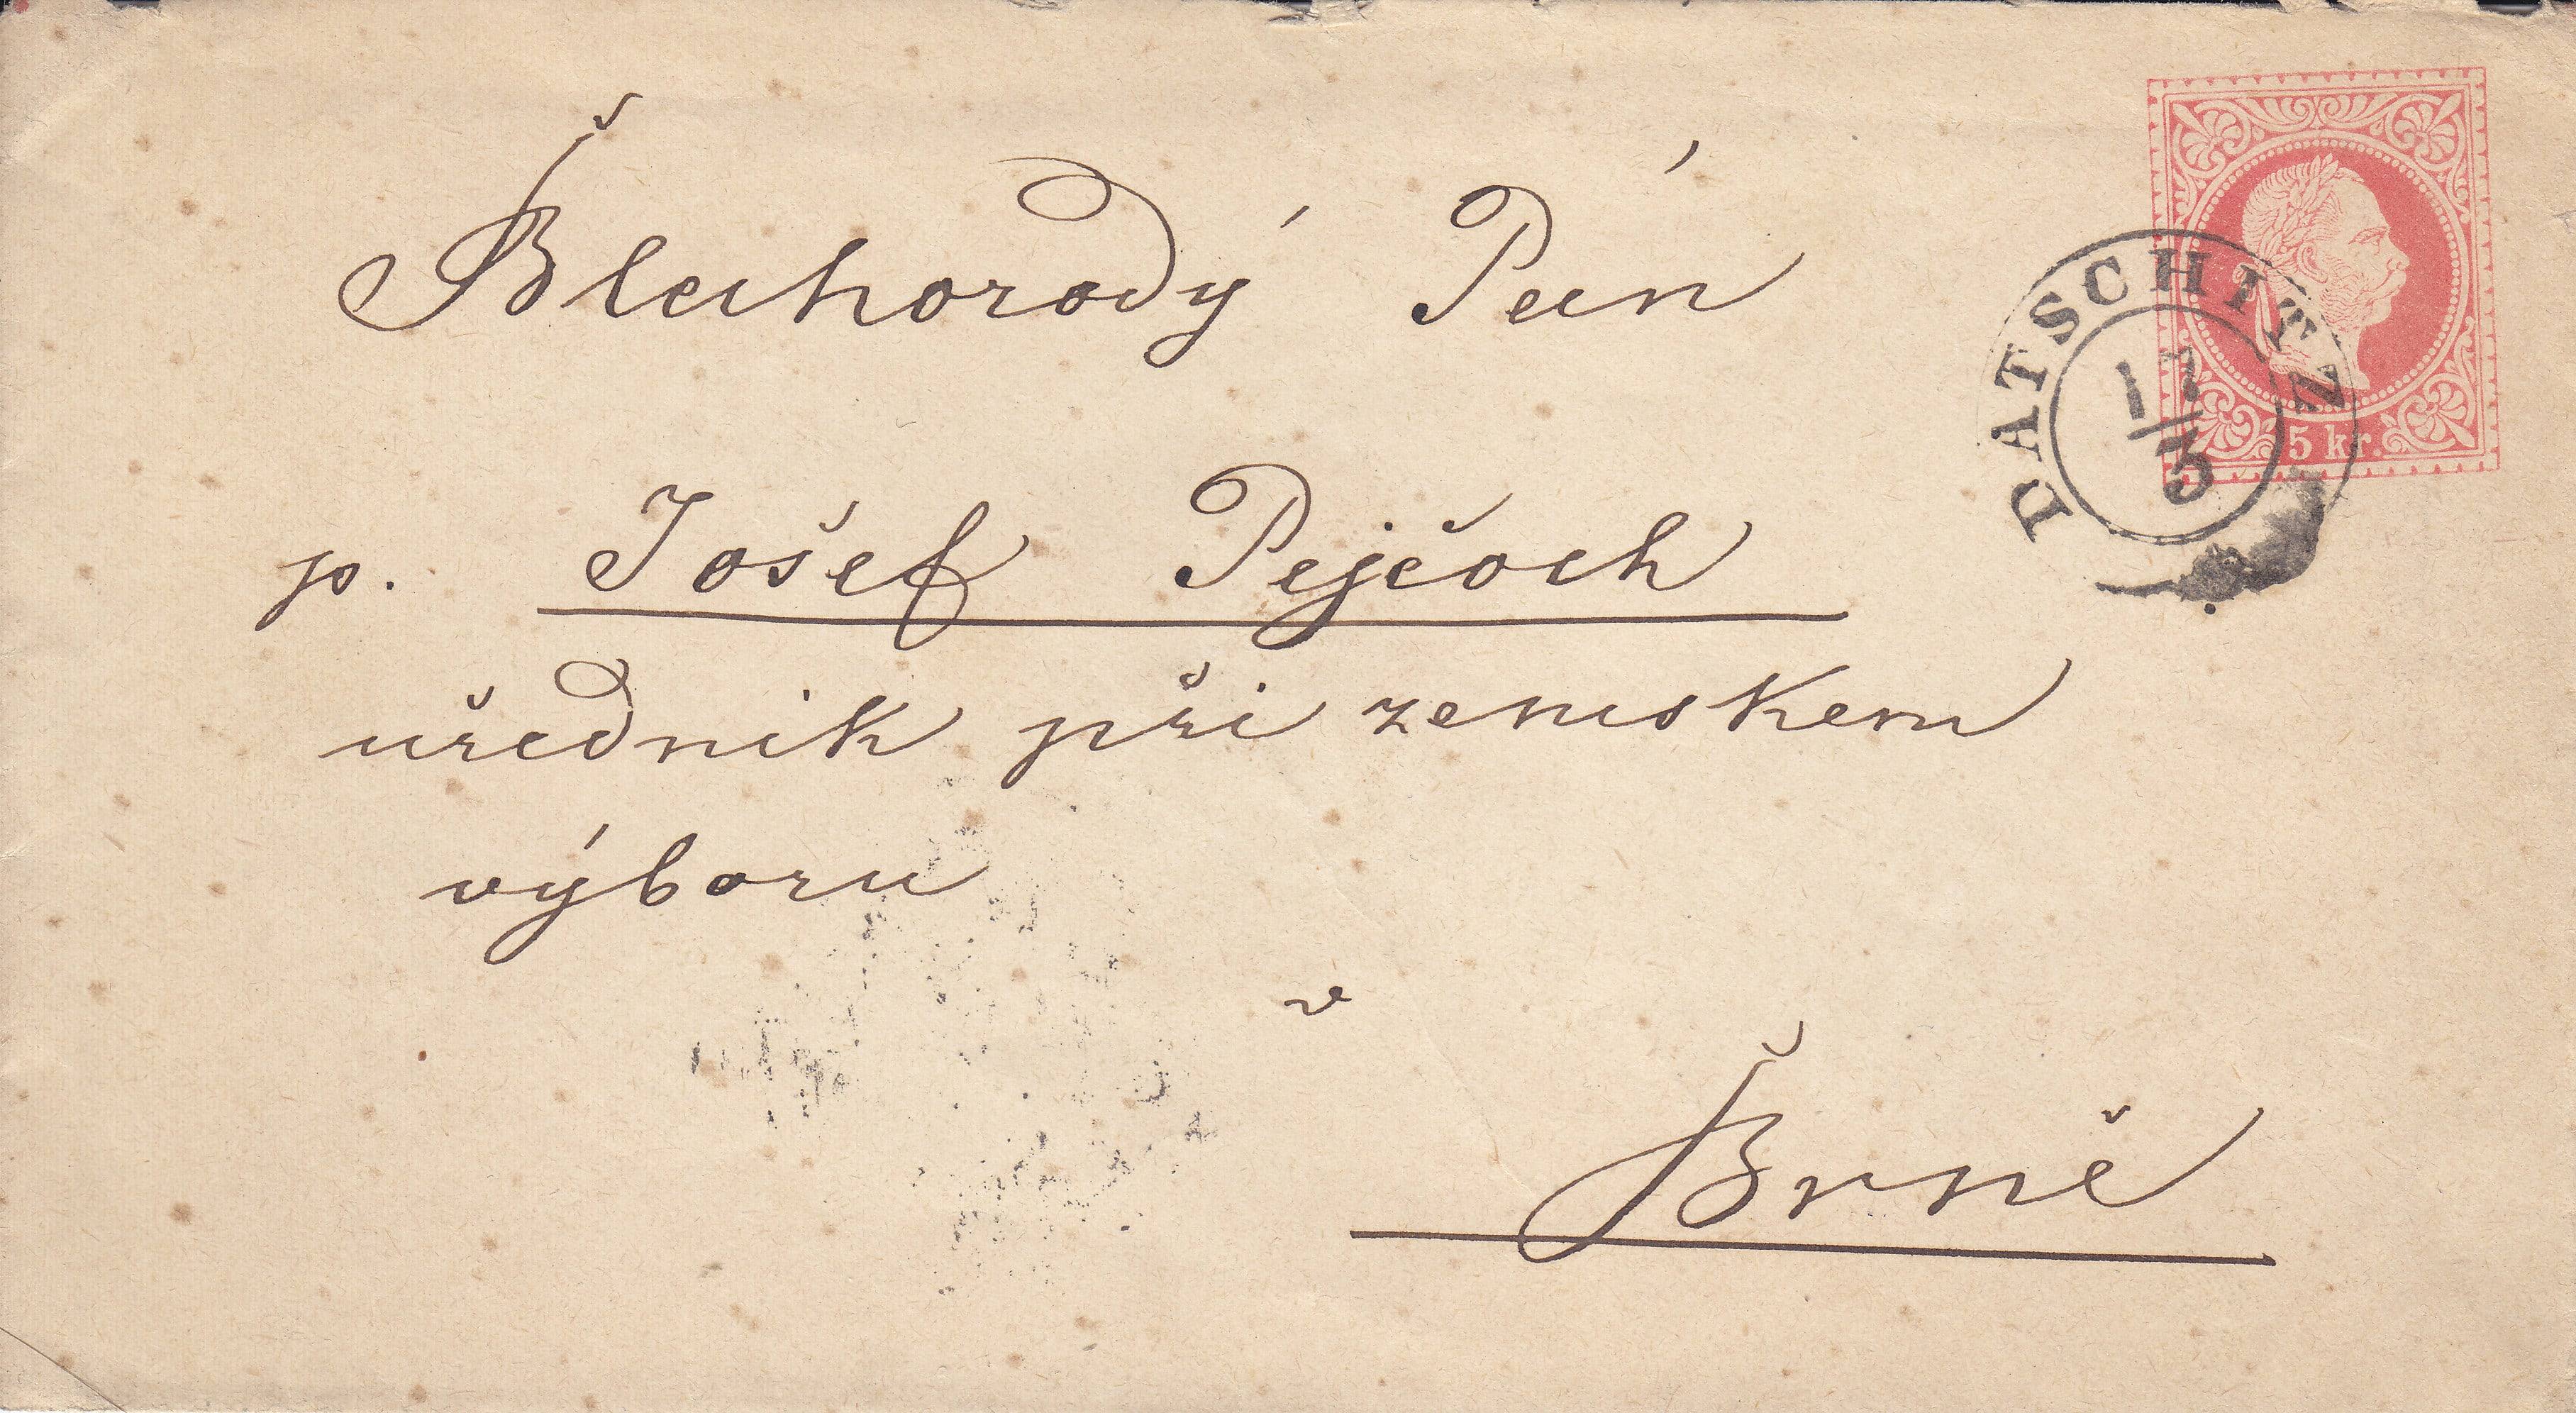 Blahorodý Pán
p. Jošef Pejčoch
uřednik při zemskem
výboru
v
Brně
DATSCHITZ
17/5
5 kr.